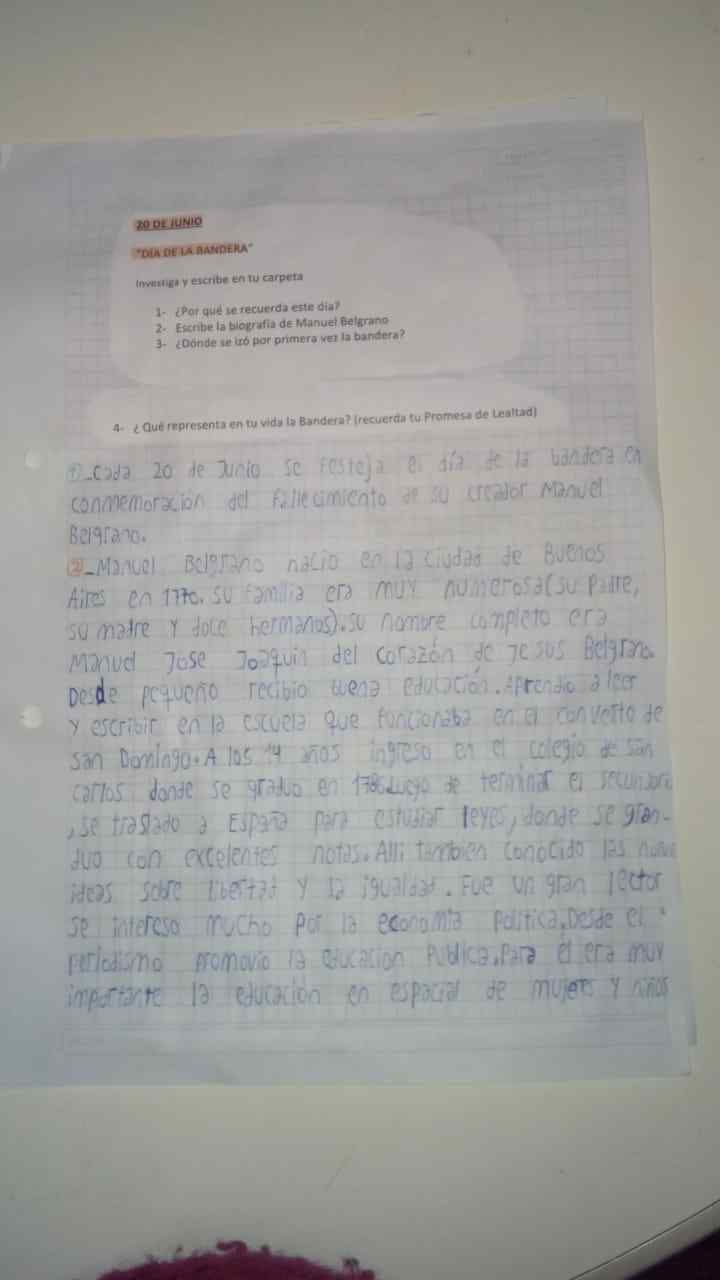 20 DE JUNIO
"DIA DE LA BANDERA"
Investiga y escribe en tu carpeta
1- ¿Por qué se recuerda este día?
2- Escribe la biografía de Manuel Belgrano
3- ¿Dónde se izó por primera vez la bandera?
4- ¿ Qué representa en tu vida la Bandera? (recuerda tu Promesa de Lealtad)
1_Cada 20 de Junio se festeja el día de la bandera en
conmemoración del fallecimiento de su creador Manuel
Belgrano.
2_Manuel Belgrano nacio en la ciudad de Buenos
Aires en 1770. su familia era muy numerosa(su padre,
su madre y doce hermanos).su nombre completo era
Manuel Jose Joaquin del corazón de Jesus Belgrano.
Desde pequeño recibio buena educación.Aprendio a leer
y escribir en la escuela que funcionaba en el convento de
san Domingo.A los 14 años ingreso en el colegio de san
carlos donde se graduo en 1786.Luego de terminar el
,se traslado a España para estudiar leyes, donde se gran-
duo con excelentes notas. Alli tambien conocido las
ideas sobre libertad y la igualdad. Fue un gran lector
se intereso mucho por la economia politica.Desde el
periodismo promovio la educacion publica.Para el era muy
importante la educación en espacial de mujers y niños